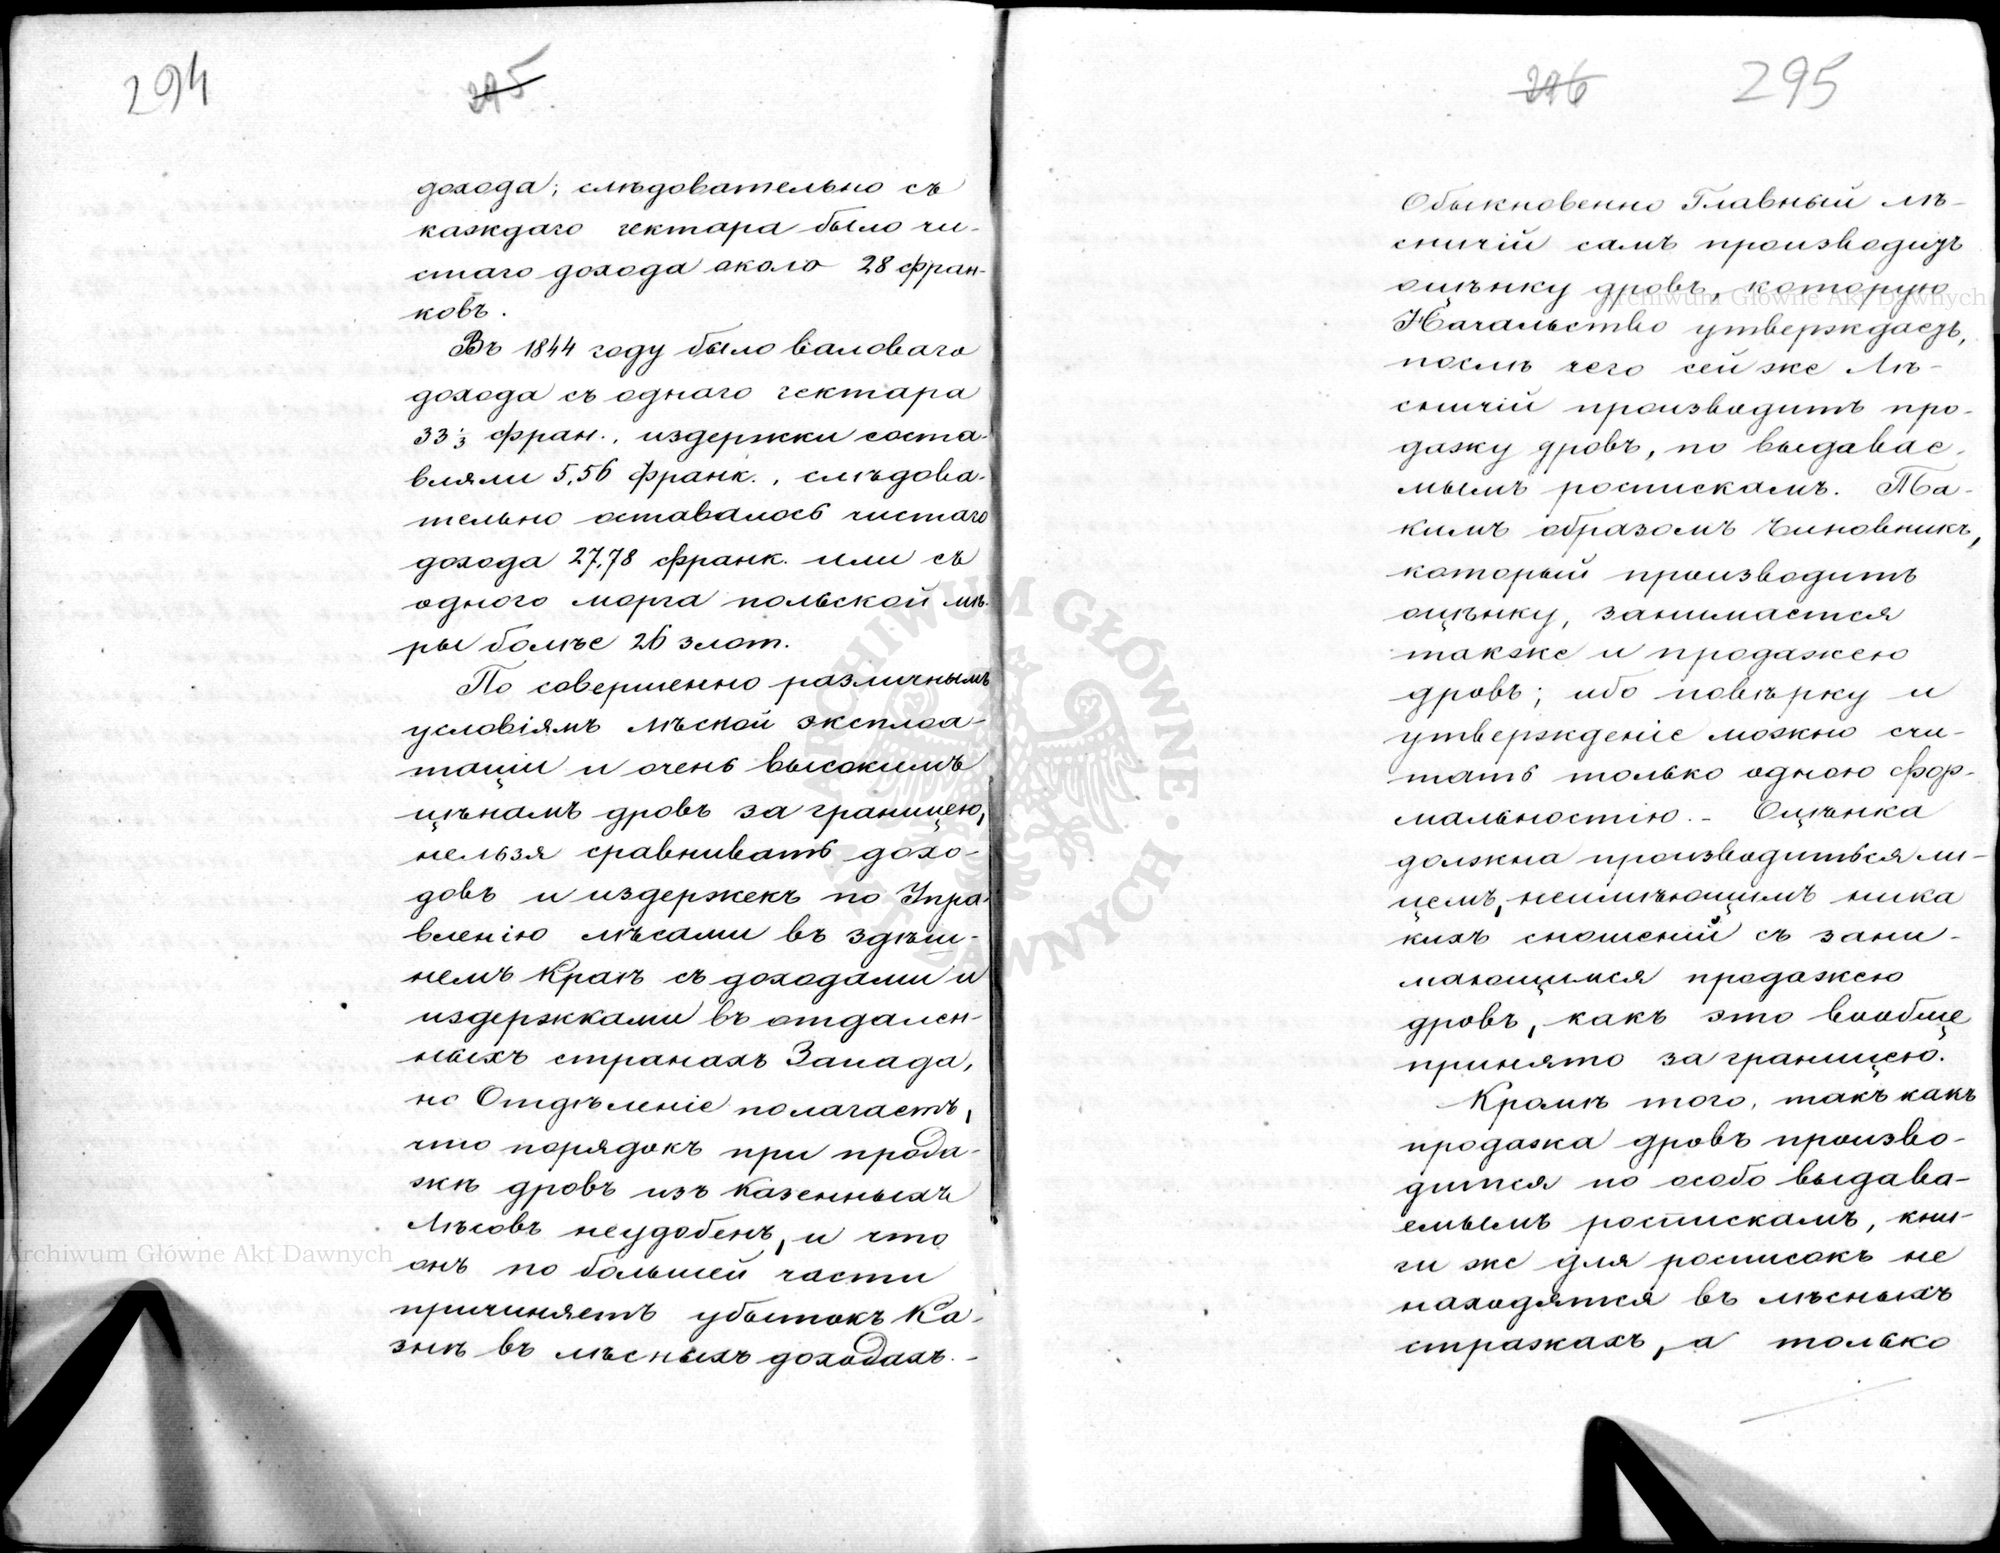 294
295
дохода; слѣдовательно съ
каждаго гектара было чи-
стаго дохода около 28 фран-
ковъ.
Въ 1844 году было валоваго
дохода съ одного гектара
33 1/3 фран., издержки соста-
вляли 5,56 франк., слѣдова-
тельно оставалось чистаго
дохода 27,78 франк. или съ
одного морга польской мѣ-
ры болѣе 26 злот.
По совершенно различнымъ
условіямъ лѣсной эксплоа-
таціи и очень высокимъ
цѣнамъ дровъ за границею,
нельзя сравнивать дохо-
довъ и издержекъ по Упра-
вленію лѣсами въ здѣш-
немъ Краѣ съ доходами и
издержками въ отдален-
ныхъ странахъ Запада,
но Отдѣленіе полагаетъ,
что порядокъ при прода-
жѣ дровъ изъ казенныхъ
лѣсовъ неудобенъ, и что
онъ по большей части
причиняетъ убытокъ Ка-
знѣ въ лѣсныхъ доходахъ.-
296
295
Обыкновенно Главный лѣ-
сничій самъ производитъ
оцѣнку дровъ, которую
Начальство утверждаетъ,
послѣ чего сей же Лѣ-
сничій производитъ про-
дажу дровъ, по выдавае-
мымъ роспискамъ. Та-
кимъ образомъ Чиновникъ,
который производитъ
оцѣнку, занимается
также и продажею
дровъ; ибо повѣрку и
утвержденіе можно счи-
тать только одною фор-
мальностію.- Оцѣнка
должна производиться ли-
цемъ, неимѣющимъ ника
кихъ сношеній съ зани-
мающимся продажею
дровъ, какъ это вообще
принято за границею.
Кромѣ того, такъ какъ
продажа дровъ произво-
дится по особо выдава-
емымъ роспискамъ, кни-
ги же для росписокъ не
находятся въ лѣсныхъ
стражахъ, а только
ARCHIWUM GŁÓWNE AKT DAWNYCH
Archiwum Główne Akt Dawnych
Archiwum Główne Akt Dawnych